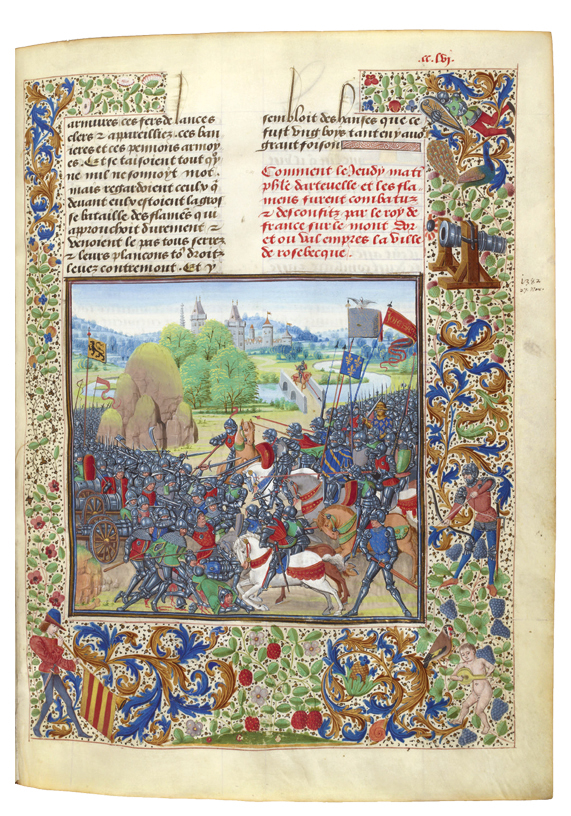 .cc.lvi.
armures. ces fers de lances
clers & appareilliez. ces ban
ieres et ces pennons armoy
es. Et se taisoient tout qͥ
ne mil ne sonnoyt mot.
mais regardoient ceulx qͥ
deuant eulx estoient la gros
se bataille des flamẽs qui
approuchoit durement &
venoient le pas tous serrez
& leurs plancons to9 droitz
leuez contremont. Et y
sembloit des hanses que ce
fust vng boys tant en y auoit
grant foison
Comment le Jeudy mati
phle dartevelle et les fla
mens furent combatuz
& desconfitz par le roy de
france sur le mont Dor
et ou val empres la ville
de rosebecque.
1382
27. Nov.